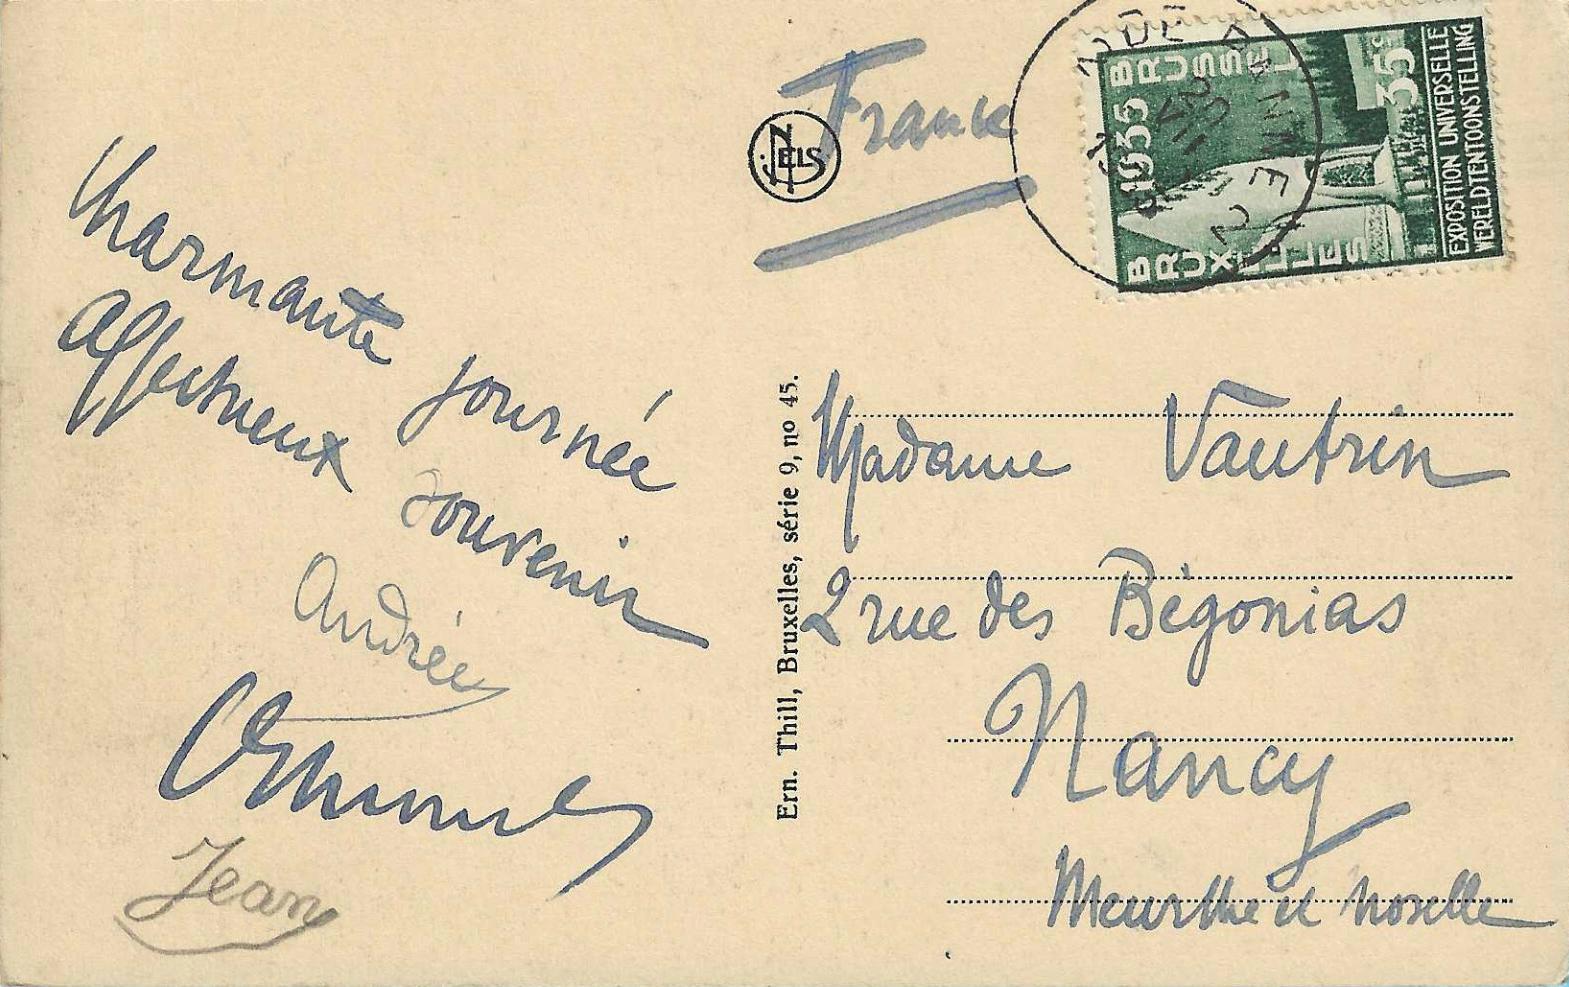 Charmante journée
Affectueux souvenir
Andrée
Jean
France
NELS
DE PANNE 2
20 VII
1935 BRUSSEL
35c
BRUXELLES
EXPOSITION UNIVERSELLE
WERELDTENTOONSTELLING
Ern. Thill, Bruxelles, série 9, no 45.
Madame Vautrin
2 rue des Bégonias
Nancy
Meurthe et Moselle